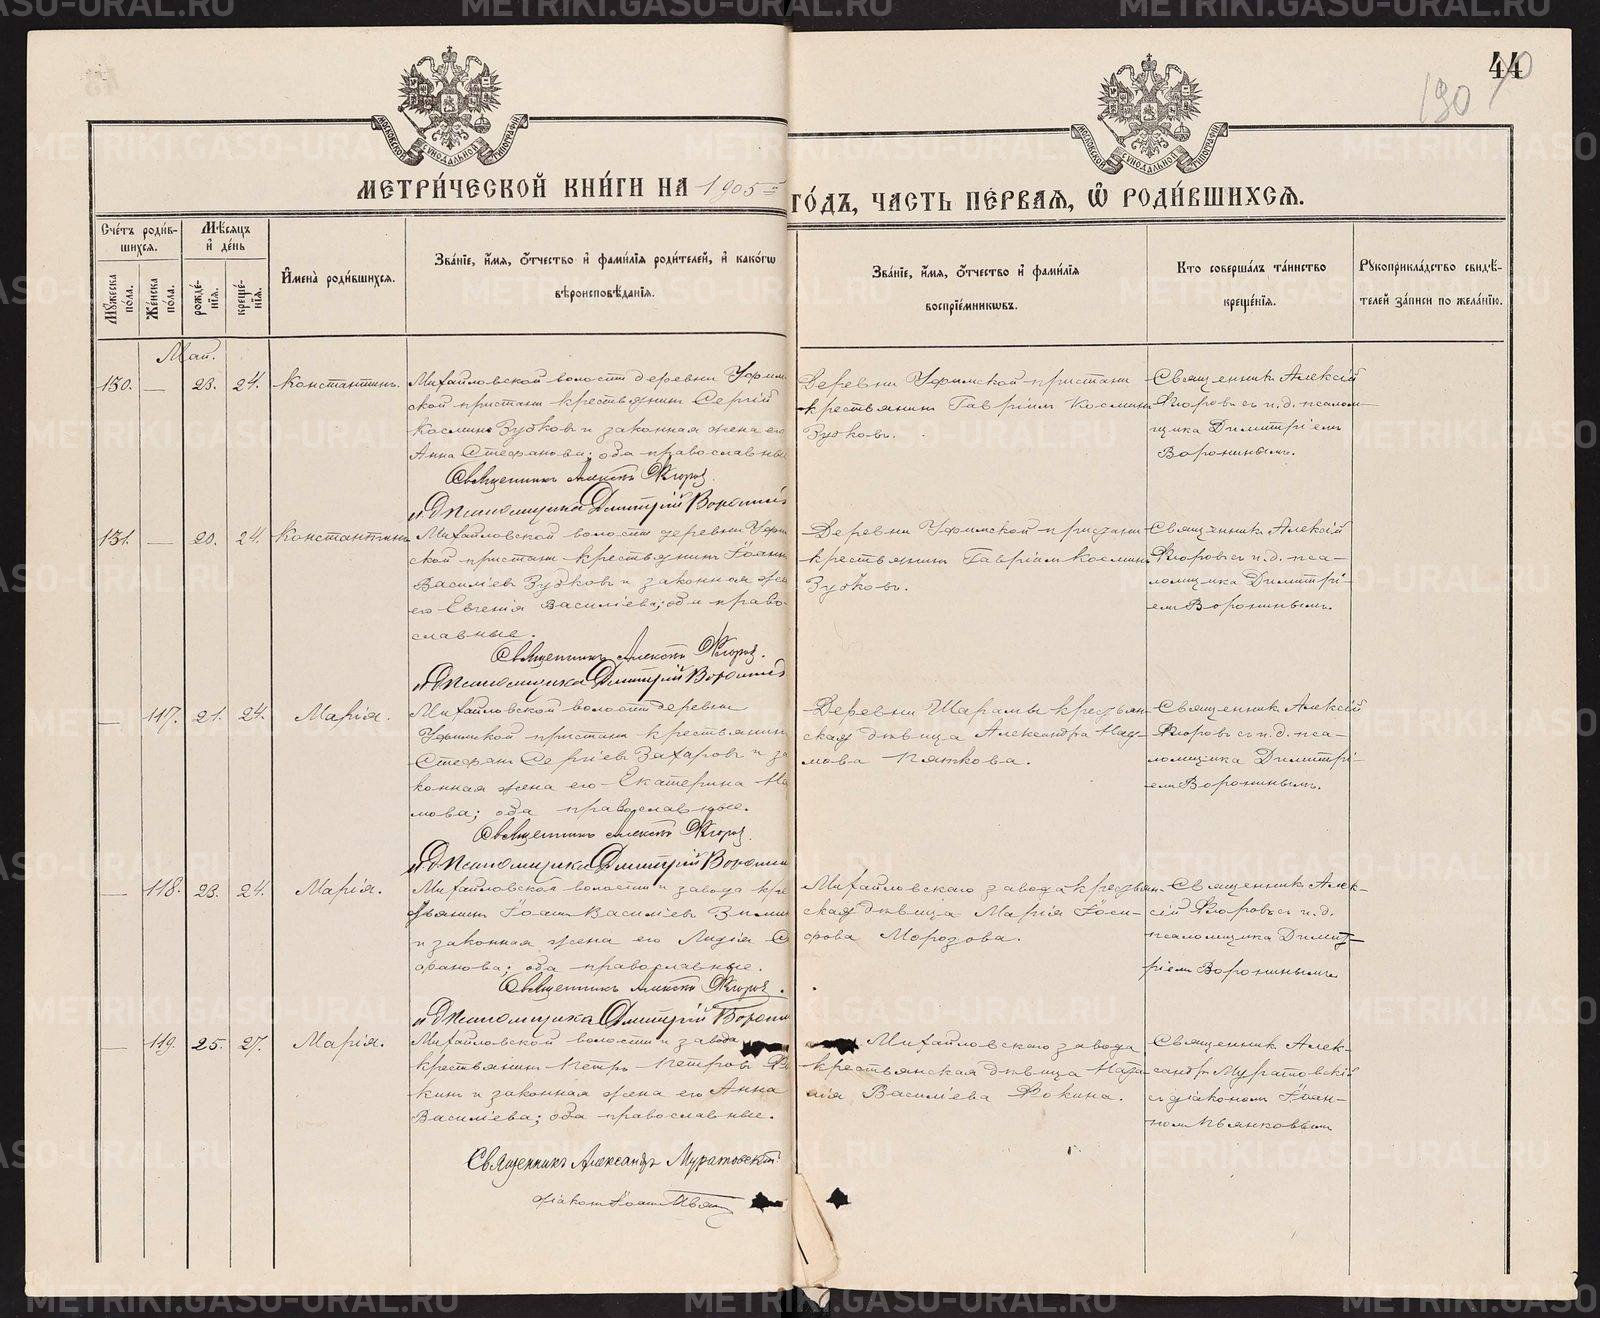 44
190
МОСКОВСКОЙ СУНОДАЛЬНОЙ ТИПОГРАФІИ
МОСКОВСКОЙ СУНОДАЛЬНОЙ ТИПОГРАФІИ
МЕТРИ́ЧЕСКОЙ КНИ́ГИ НА 1905 ГО́ДЪ, ЧАСТЬ ПЕ́РВАЯ, Ѡ҆ РОДИ́ВШИХСЯ.
Сче́тъ роди́в-
шихся.
Мѣ́сяцъ
и҆ де́нь
Мꙋ́жеска
по́ла.
Же́нска
по́ла.
рожде́-
нїя.
креще́-
нїя.
И҆мена̀ роди́вшихся.
Зва́нїе, и҆́мя, ѻ҆́тчество и҆ фами́лїя роди́телей, и҆ како́гѡ
вѣроисповѣ́данїя.
Зва́нїе, и҆́мя, ѻ҆́тчество и҆ фами́лїя
воспрїе́мникѡвъ.
Кто соверша́лъ та́инство
креще́нїя.
Рꙋкоприкла́дство свидѣ́-
телей за́писи по жела́нїю.
Май.
130. — 23. 24. Константинъ.
Михайловской волости деревни Уфим
ской пристани крестьянин Сергій
Космин Зубковъ и законная жена его
Анна Стефанова; оба православные
Священникъ Алексѣй Флоровъ.
и д псаломщика Дмитрій Воронинъ
Деревни Уфимской пристани
крестьянин Гавріил Космин
Зубковъ.
Священник Алексій
Флоровъ с и. д. псалом-
щика Димитріем
Ворониным.
131. — 20. 24. Константинъ
Михайловской волости деревни Уфим
ской пристани крестьянин Іоанн
Васильевъ Зубковъ и законная же
его Евгенія Васильева; оба право-
славные.
Священникъ Алексѣй Флоровъ.
и д псаломщика Дмитрій Воронинъ
Деревни Уфимской пристани
крестьянин Гавріил Космин
Зубковъ.
Священник Алексій
Флоровъ с и. д. пса-
ломщика Димитрі-
ем Ворониным.
— 117. 21. 24. Марія.
Михайловской волости деревни
Уфимской пристани крестьянин
Стефан Сергіевъ Захаровъ и за
конная жена его Екатерина На
мова; оба православные.
Священникъ Алексѣй Флоровъ.
и д псаломщика Дмитрій Воронин
Деревни Шарамы крестьян-
ская дѣвица Александра Нау-
мова Пяткова.
Священник Алексій
Флоровъ с и. д. пса-
ломщика Димитрі-
ем Ворониным.
— 118. 23. 24. Марія.
Михайловской волости и завода кре
стьянин Іоанн Васильевъ Зимин
и законная жена его Лидія С
фанова; оба православные.
Священникъ Алексѣй Флоровъ.
и д псаломщика Дмитрій Ворони
Михайловскаго завода крестьян-
ская дѣвица Марія Іоси-
фова Морозова.
Священник Алек-
сій Флоровъ с и. д.
псаломщика Димит-
ріем Ворониным
— 119. 25. 27. Марія.
Михайловской волости и завода
крестьянин Петръ Петровъ
кин и законная жена его Анна
Васильева; оба православные.
Священникъ Александръ Муратовскій.
діакон Іоанн Пьян
Михайловскаго завода
крестьянская дѣвица Ната-
лія Васильева Фокина.
Священник Алек-
сандръ Муратовскій
с діаконом Іоан-
ном Пьянковым
METRIKI.GASO-URAL.RU